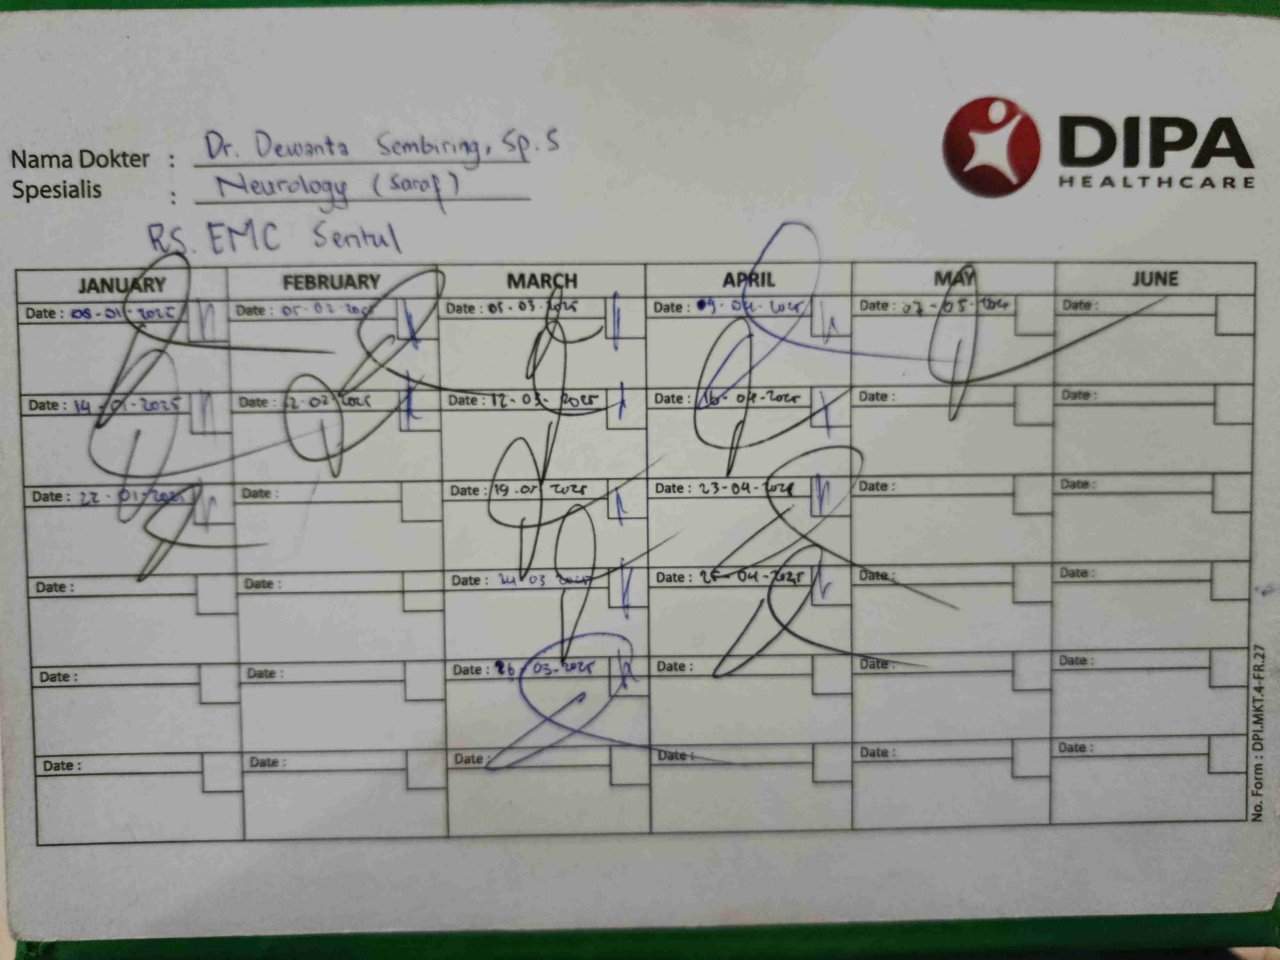 DIPA
HEALTHCARE
Nama Dokter : Dr. Dewanta Sembiring, Sp. S
Spesialis : Neurology (Saraf)
RS. EMC Sentul
JANUARY FEBRUARY MARCH APRIL MAY JUNE
Date : 08-01-2025 Date : 05-02-2025 Date : 05-03-2025 Date : 09-04-2025 Date : 07-05-2025 Date :
Date : 14-01-2025 Date : 12-02-2025 Date : 12-03-2025 Date : 16-04-2025 Date : Date :
Date : 22-01-2025 Date : Date : 19-03-2025 Date : 23-04-2025 Date : Date :
Date : Date : Date : 24 03 2025 Date : 25-04-2025 Date : Date :
Date : Date : Date : 26-03-2025 Date : Date : Date :
Date : Date : Date : Date : Date : Date :
No. Form : DPI.MKT.4-FR.27